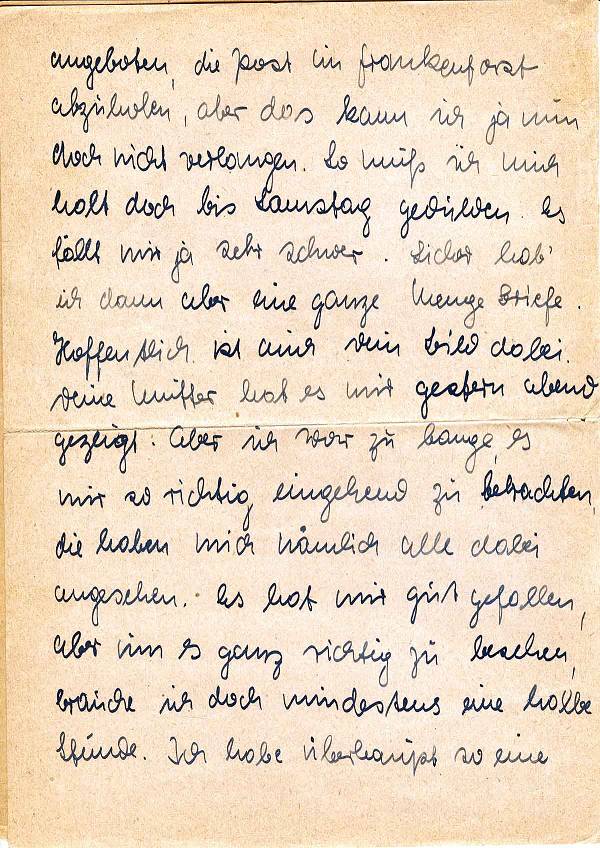 angeboten, die Post in Frankenforst
abzuholen, aber das kann ich ja nun
doch nicht verlangen. So muß ich mich
halt doch bis Samstag gedulden. Es
fällt mir ja sehr schwer. Sicher hab'
ich dann aber eine ganze Menge Briefe.
Hoffentlich ist auch dein Bild dabei.
Deine Mutter hat es mir gestern abend
gezeigt. Aber ich war zu bange, es
mir so richtig eingehend zu betrachten,
die haben mich nämlich alle dabei
angesehen. Es hat mir gut gefallen,
aber um es ganz richtig zu besehen,
brauche ich doch mindestens eine halbe
Stunde. Ich habe überhaupt so eine